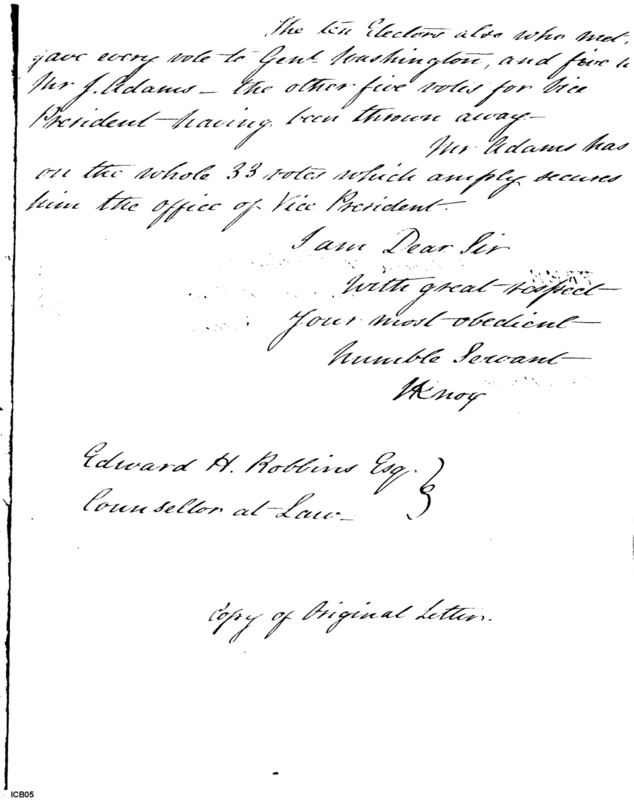 The ten Electors also who met,
gave every vote to Genl. Washington, and five to
Mr J. Adams – the other five votes for Vice
President having been thrown away –
Mr Adams has
on the whole 33 votes which amply secures
him the office of Vice President.
I am Dear Sir
With great respect
Your most obedient
humble Servant
HKnox
Edward H. Robbins Esq.
Counsellor at Law –
Copy of Original Letter.
ICB05